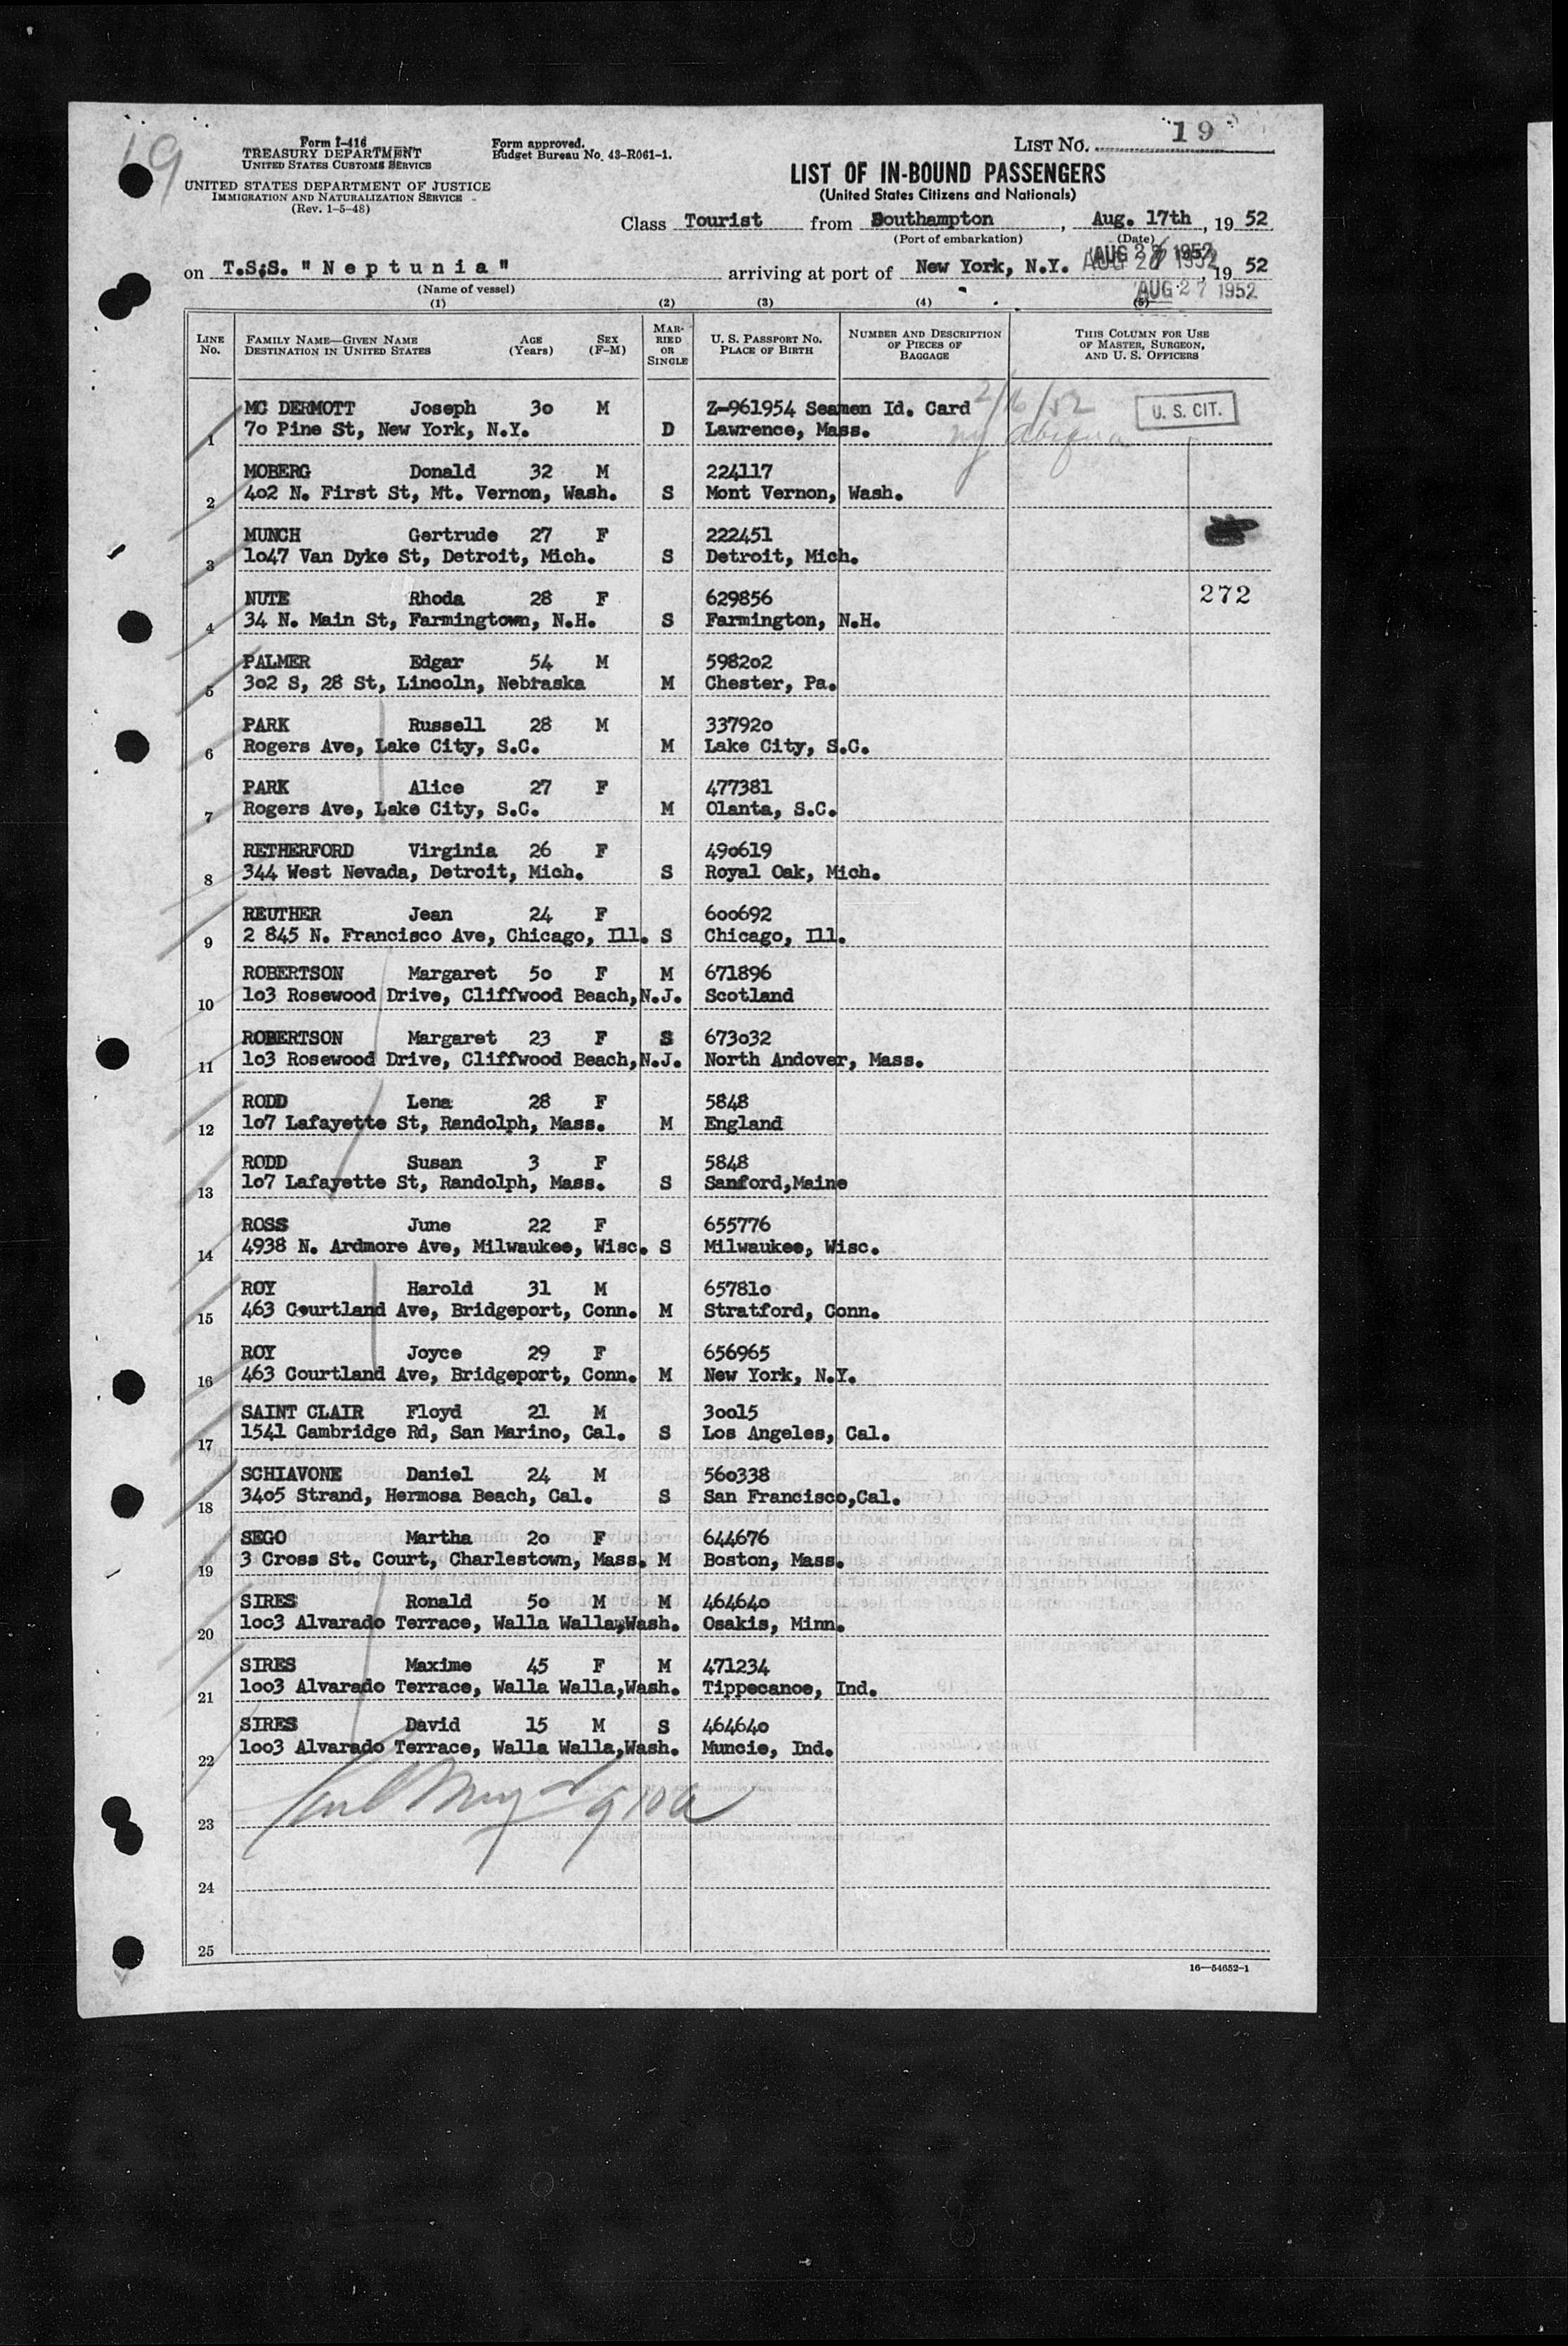 19
Form I-416
TREASURY DEPARTMENT
UNITED STATES CUSTOMS SERVICE
UNITED STATES DEPARTMENT OF JUSTICE
IMMIGRATION AND NATURALIZATION SERVICE
(Rev. 1-5-48)
Form approved.
Budget Bureau No. 43-R061-1.
LIST NO. 19
LIST OF IN-BOUND PASSENGERS
(United States Citizens and Nationals)
Class Tourist from Southampton, Aug. 17th, 19 52
(Port of embarkation) (Date)
on T.S.S. "Neptunia" arriving at port of New York, N.Y. 19 52
(Name of vessel)
AUG 27 1952
(1) (2) (3) (4) (5)
LINE No. FAMILY NAME—GIVEN NAME DESTINATION IN UNITED STATES AGE (Years) SEX (F-M) MARRIED OR SINGLE U. S. PASSPORT NO. PLACE OF BIRTH NUMBER AND DESCRIPTION OF PIECES OF BAGGAGE THIS COLUMN FOR USE OF MASTER, SURGEON, AND U. S. OFFICERS
MC DERMOTT Joseph 30 M Z-961954 Seamen Id. Card 2/16/52 U. S. CIT.
1 70 Pine St, New York, N.Y. D Lawrence, Mass.
MOBERG Donald 32 M 224117
2 402 N. First St, Mt. Vernon, Wash. S Mont Vernon, Wash.
MUNCH Gertrude 27 F 222451
3 1047 Van Dyke St, Detroit, Mich. S Detroit, Mich.
NUTE Rhoda 28 F 629856 272
4 34 N. Main St, Farmingtown, N.H. S Farmington, N.H.
PALMER Edgar 54 M 598202
5 302 S, 28 St, Lincoln, Nebraska M Chester, Pa.
PARK Russell 28 M 337920
6 Rogers Ave, Lake City, S.C. M Lake City, S.C.
PARK Alice 27 F 477381
7 Rogers Ave, Lake City, S.C. M Olanta, S.C.
RETHERFORD Virginia 26 F 490619
8 344 West Nevada, Detroit, Mich. S Royal Oak, Mich.
REUTHER Jean 24 F 600692
9 2 845 N. Francisco Ave, Chicago, Ill. S Chicago, Ill.
ROBERTSON Margaret 50 F M 671896
10 103 Rosewood Drive, Cliffwood Beach,N.J. Scotland
ROBERTSON Margaret 23 F S 673032
11 103 Rosewood Drive, Cliffwood Beach,N.J. North Andover, Mass.
RODD Lena 28 F 5848
12 107 Lafayette St, Randolph, Mass. M England
RODD Susan 3 F 5848
13 107 Lafayette St, Randolph, Mass. S Sanford,Maine
ROSS June 22 F 655776
14 4938 N. Ardmore Ave, Milwaukee, Wisc. S Milwaukee, Wisc.
ROY Harold 31 M 657810
15 463 Courtland Ave, Bridgeport, Conn. M Stratford, Conn.
ROY Joyce 29 F 656965
16 463 Courtland Ave, Bridgeport, Conn. M New York, N.Y.
SAINT CLAIR Floyd 21 M 30015
17 1541 Cambridge Rd, San Marino, Cal. S Los Angeles, Cal.
SCHIAVONE Daniel 24 M 560338
18 3405 Strand, Hermosa Beach, Cal. S San Francisco,Cal.
SEGO Martha 20 F 644676
19 3 Cross St. Court, Charlestown, Mass. M Boston, Mass.
SIRES Ronald 50 M M 464640
20 1003 Alvarado Terrace, Walla Walla,Wash. Osakis, Minn.
SIRES Maxime 45 F M 471234
21 1003 Alvarado Terrace, Walla Walla,Wash. Tippecanoe, Ind.
SIRES David 15 M S 464640
22 1003 Alvarado Terrace, Walla Walla,Wash. Muncie, Ind.
23
24
25
16—54652-1